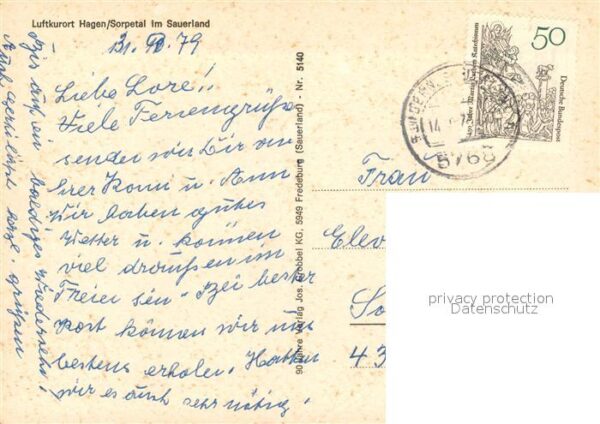 Luftkurort Hagen/Sorpetal im Sauerland
79
Liebe Lore!!
Viele Feriengrüße
senden wir Dir von
hier Konni u. Ann
Wir haben gutes
Wetter u. können
viel draußen im
Freien sein. Bei bester
Kost können wir uns
bestens erholen. Hatten
wir es auch sehr nötig.
Bis auf ein baldiges Wiedersehn,
grüßen
90 Jahre Verlag Jos. Grobbel KG, 5949 Fredeburg (Sauerland) - Nr. 5140
50
Deutsche Bundespost
14
5768
Frau
Elev
So
43
privacy protection
Datenschutz